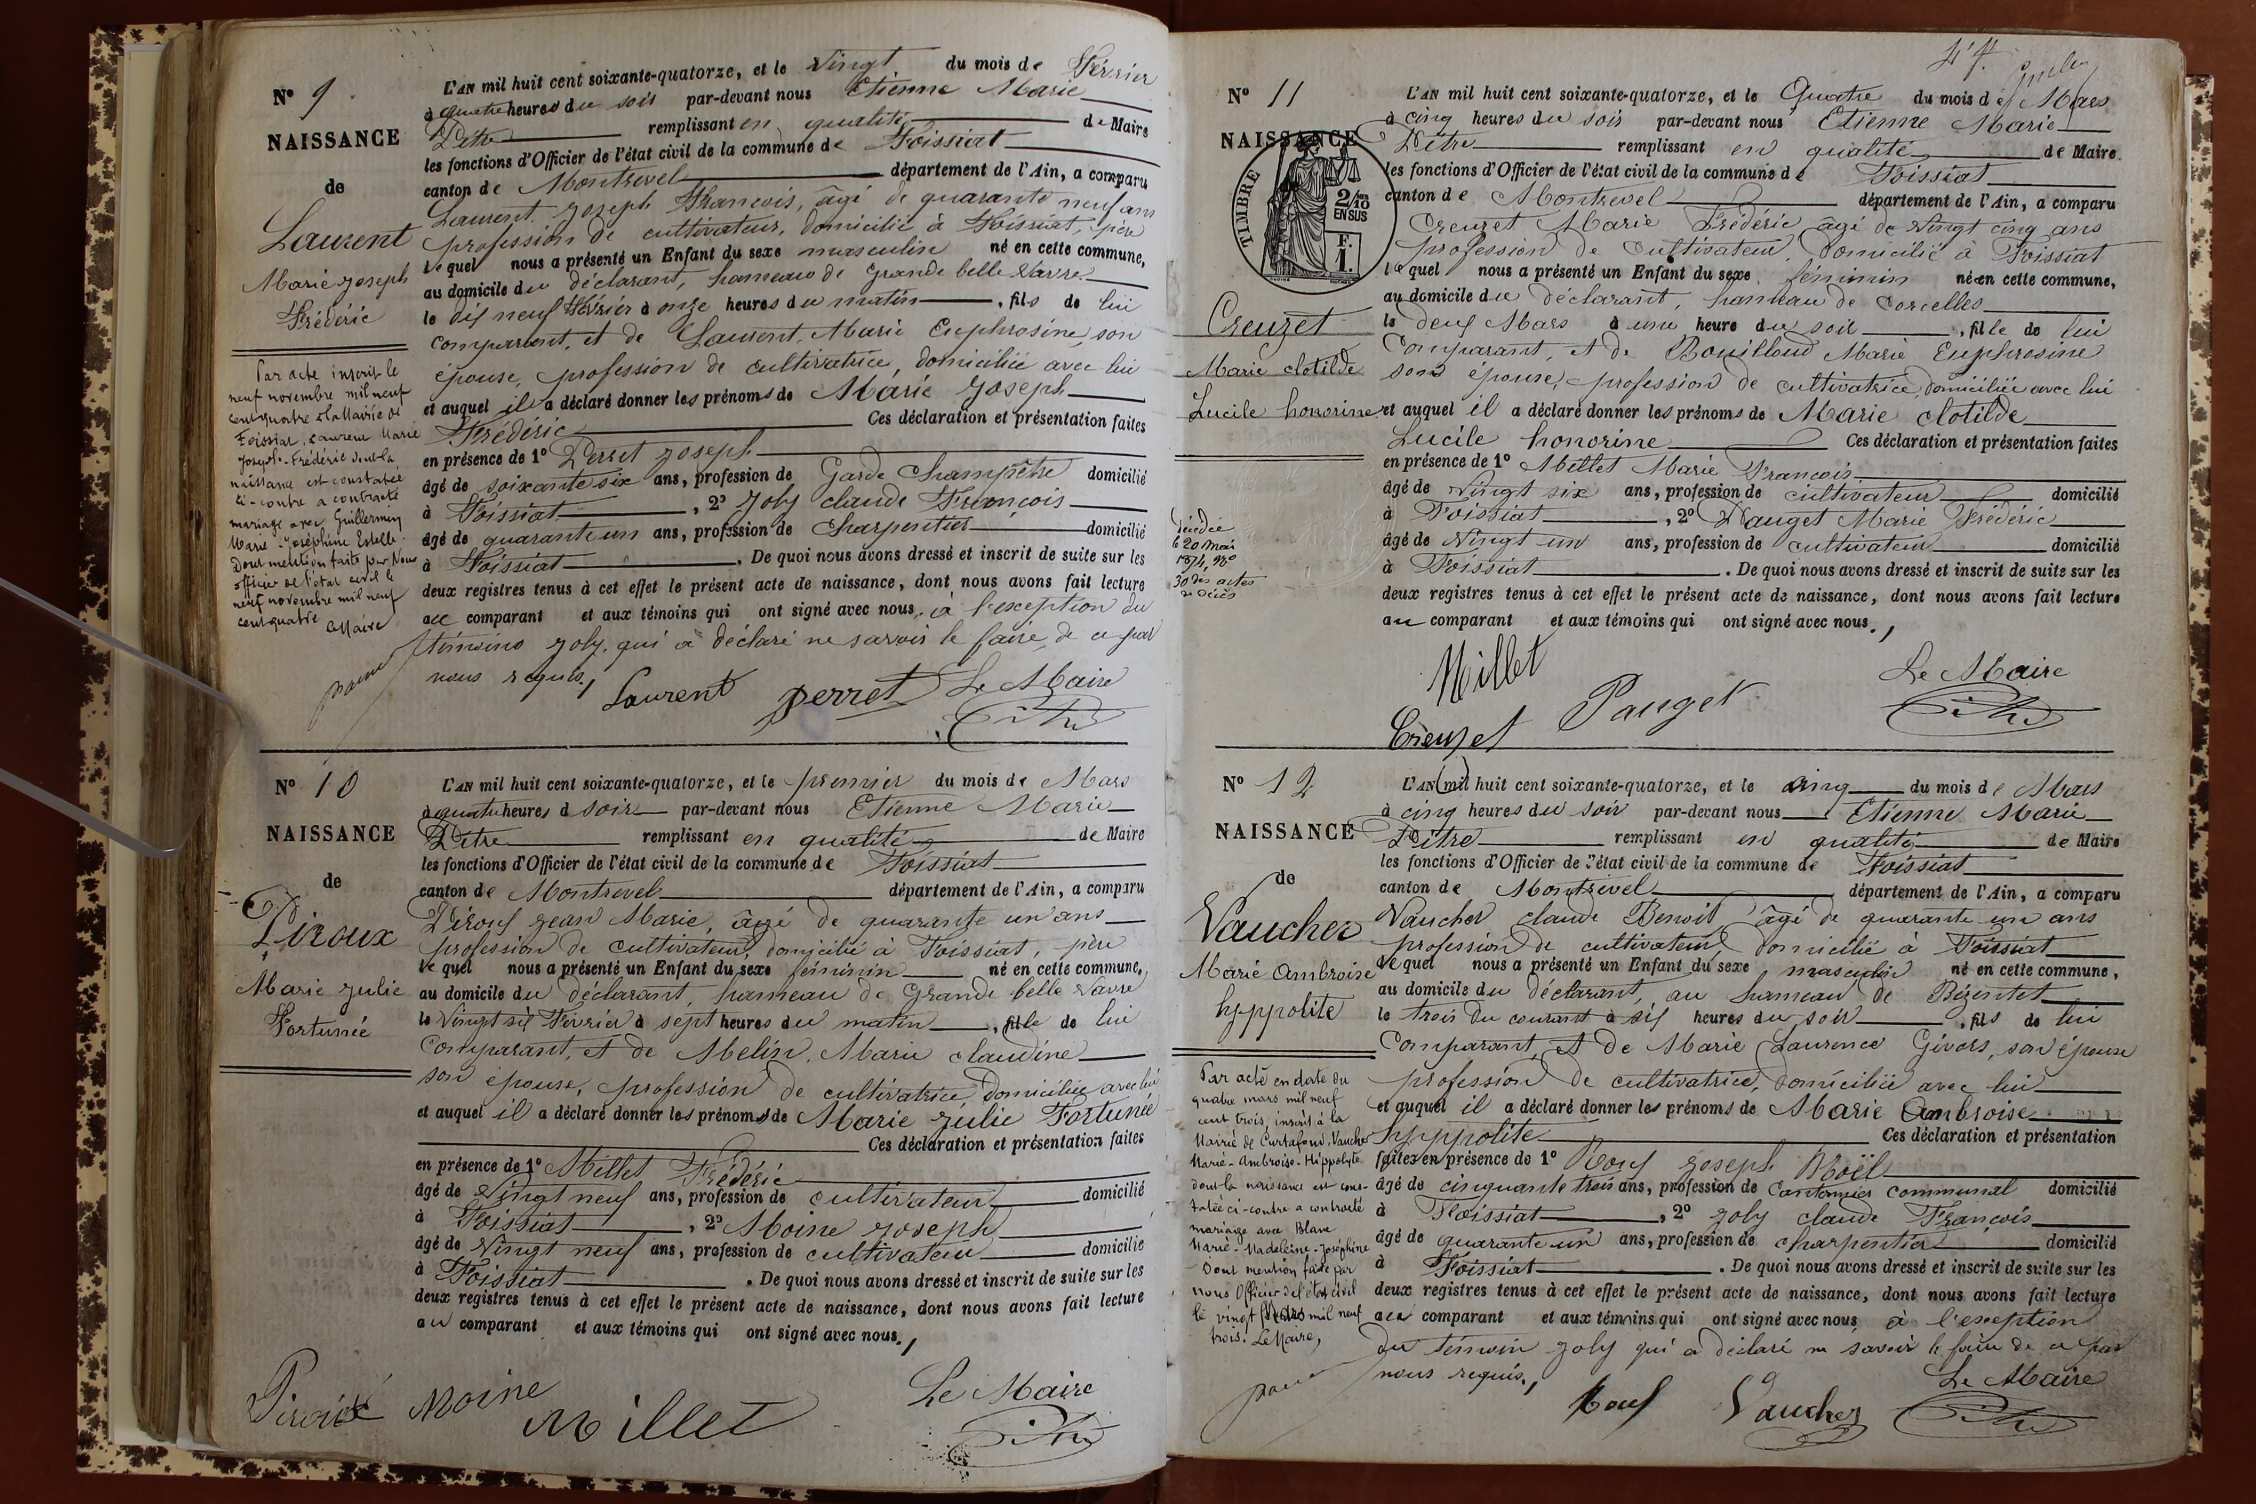 Nº 9
NAISSANCE
de
Laurent
Marie Joseph
Frédéric
Par acte inscrit le
neuf novembre mil neuf
cent quatre à la Mairie de
Foissiat, Laurent Marie
Joseph-Frédéric dont la
naissance est constatée
ci-contre a contracté
mariage avec Guillermin
Marie-Joséphine Estelle.
Dont mention faite par Nous
officier de l'état civil le
neuf novembre mil neuf
cent quatre Le Maire
L'AN mil huit cent soixante-quatorze, et le Vingt du mois de Février
à quatre heures du soir par-devant nous Etienne Marie
Pitre remplissant en qualité de Maire
les fonctions d'Officier de l'état civil de la commune de Foissiat
canton de Montrevel département de l'Ain, a comparu
Laurent Joseph François, âgé de quarante neuf ans
profession de cultivateur, domicilié à Foissiat, père
lequel nous a présenté un Enfant du sexe masculin né en cette commune,
au domicile du déclarant, hameau de Grande belle Vavre
le dix neuf Février à onze heures du matin, fils de lui
comparant, et de Laurent, Marie Euphrosine, son
épouse, profession de cultivatrice, domiciliée avec lui
et auquel il a déclaré donner les prénoms de Marie Joseph
Frédéric Ces déclaration et présentation faites
en présence de 1º Perret Joseph
âgé de soixante six ans, profession de Garde Champêtre domicilié
à Foissiat, 2º Joly claude François
âgé de quarante un ans, profession de Charpentier domicilié
à Foissiat. De quoi nous avons dressé et inscrit de suite sur les
deux registres tenus à cet effet le présent acte de naissance, dont nous avons fait lecture
au comparant et aux témoins qui ont signé avec nous, à l'exception du
témoins Joly, qui a déclaré ne savoir le faire, de ce par
nous requis.
Laurent Perret Le Maire
Pitre
Nº 10
NAISSANCE
de
Piroux
Marie Julie
Fortunée
L'AN mil huit cent soixante-quatorze, et le premier du mois de Mars
à quatre heures d soir par-devant nous Etienne Marie
Pitre remplissant en qualité de Maire
les fonctions d'Officier de l'état civil de la commune de Foissiat
canton de Montrevel département de l'Ain, a comparu
Piroux Jean Marie, âgé de quarante un ans
profession de cultivateur, domicilié à Foissiat, père
lequel nous a présenté un Enfant du sexe féminin né en cette commune,
au domicile du déclarant, hameau de Grande belle Vavre
le Vingt six Février à sept heures du matin, fille de lui
comparant, et de Melin, Marie claudine
son épouse, profession de cultivatrice, domiciliée avec lui
et auquel il a déclaré donner les prénoms de Marie Julie Fortunée
Ces déclaration et présentation faites
en présence de 1º Millet Frédéric
âgé de Vingt neuf ans, profession de cultivateur domicilié
à Foissiat, 2º Moine Joseph
âgé de Vingt neuf ans, profession de cultivateur domicilié
à Foissiat. De quoi nous avons dressé et inscrit de suite sur les
deux registres tenus à cet effet le présent acte de naissance, dont nous avons fait lecture
au comparant et aux témoins qui ont signé avec nous.
Piroux Moine Millet Le Maire
Pitre
Nº 11
NAISSANCE
TIMBRE
2/10 EN SUS
F. 1.
Creuzet
Marie clotilde
Lucile honorine
Décédée
le 20 Mai
1874, Nº
30 des actes
de décès
L'AN mil huit cent soixante-quatorze, et le Quatre du mois de Mars
à cinq heures du soir par-devant nous Etienne Marie
Pitre remplissant en qualité de Maire.
les fonctions d'Officier de l'état civil de la commune de Foissiat
canton de Montrevel département de l'Ain, a comparu
Creuzet Marie Frédéric âgé de Vingt cinq ans
profession de cultivateur, domicilié à Foissiat
lequel nous a présenté un Enfant du sexe féminin née en cette commune,
au domicile du déclarant, hameau de Corcelles
le deux Mars à une heure du soir, fille de lui
comparant, et de Bouilloud Marie Euphrosine
son épouse, profession de cultivatrice, domiciliée avec lui
et auquel il a déclaré donner les prénoms de Marie clotilde
Lucile honorine Ces déclaration et présentation faites
en présence de 1º Millet Marie François
âgé de Vingt six ans, profession de cultivateur domicilié
à Foissiat, 2º Pauget Marie Frédéric
âgé de Vingt un ans, profession de cultivateur domicilié
à Foissiat. De quoi nous avons dressé et inscrit de suite sur les
deux registres tenus à cet effet le présent acte de naissance, dont nous avons fait lecture
au comparant et aux témoins qui ont signé avec nous.
Millet Le Maire
Creuzet Pauget Pitre
Nº 12
NAISSANCE
de
Vaucher
Marie Ambroise
hyppolite
Par acte en date du
quatre mars mil neuf
cent trois, inscrit à la
Mairie de Curtafond, Vaucher
Marie-Ambroise-Hippolyte
dont la naissance est cons-
tatée ci-contre a contracté
mariage avec Blanc
Marie-Madeleine-Joséphine
Dont mention faite par
nous Officier de l'état civil
le vingt Mars mil neuf
trois. Le Maire,
L'AN (mil) huit cent soixante-quatorze, et le cinq du mois de Mars
à cinq heures du soir par-devant nous Etienne Marie
Pitre remplissant en qualité de Maire
les fonctions d'Officier de l'état civil de la commune de Foissiat
canton de Montrevel département de l'Ain, a comparu
Vaucher claude Benoit, âgé de quarante un ans
profession de cultivateur, domicilié à Foissiat
lequel nous a présenté un Enfant du sexe masculin né en cette commune,
au domicile du déclarant, au hameau de Bézentet
le trois du courant à six heures du soir, fils de lui
comparant, et de Marie Laurence Givors, son épouse
profession de cultivatrice, domiciliée avec lui
et auquel il a déclaré donner les prénoms de Marie Ambroise
hyppolite Ces déclaration et présentation
faites en présence de 1º Roux Joseph Noël
âgé de cinquante trois ans, profession de Cantonnier communal domicilié
à Foissiat, 2º Joly claude François
âgé de quarante un ans, profession de charpentier domicilié
à Foissiat. De quoi nous avons dressé et inscrit de suite sur les
deux registres tenus à cet effet le présent acte de naissance, dont nous avons fait lecture
au comparant et aux témoins qui ont signé avec nous, à l'exception
du témoin Joly qui a déclaré ne savoir le faire de ce par
nous requis.
Roux Vaucher Le Maire
Pitre